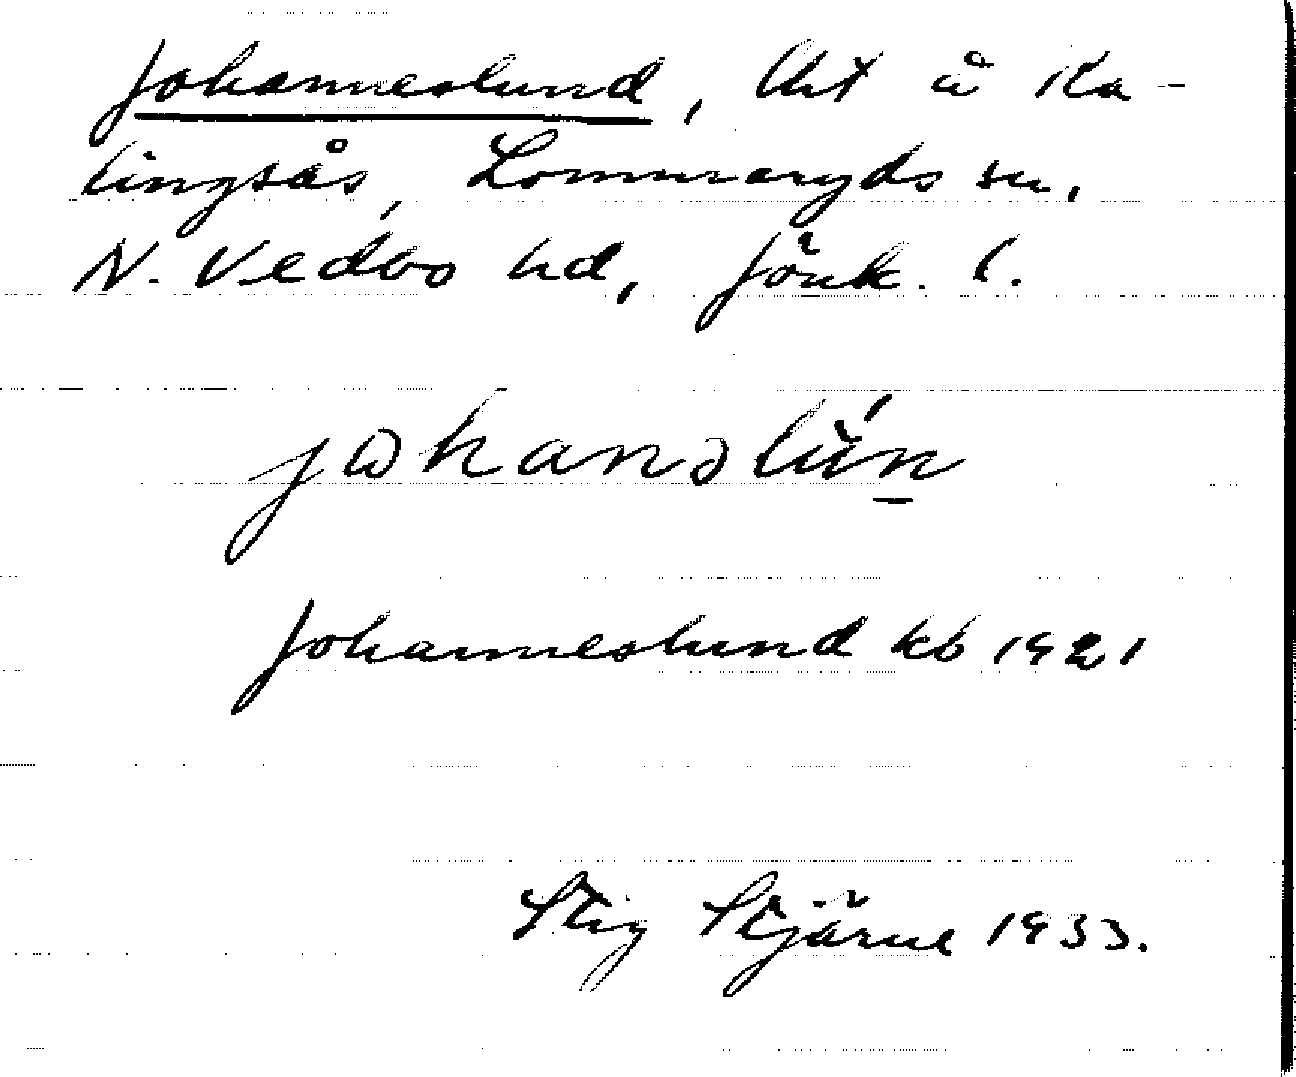 Johanneslund, Lht å Ka-
tingsås, Lommaryds sn,
N. Vedbo hd, Jönk. l.
Johanneslund kb 1921
Stig Stjärne 1933.